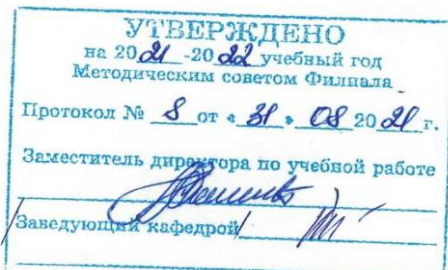 УТВЕРЖДЕНО
на 2021-2022 учебный год
Методическим советом Филиала
Протокол № 8 от « 31 » 08 2021 г.
Заместитель директора по учебной работе
Заведующий кафедрой